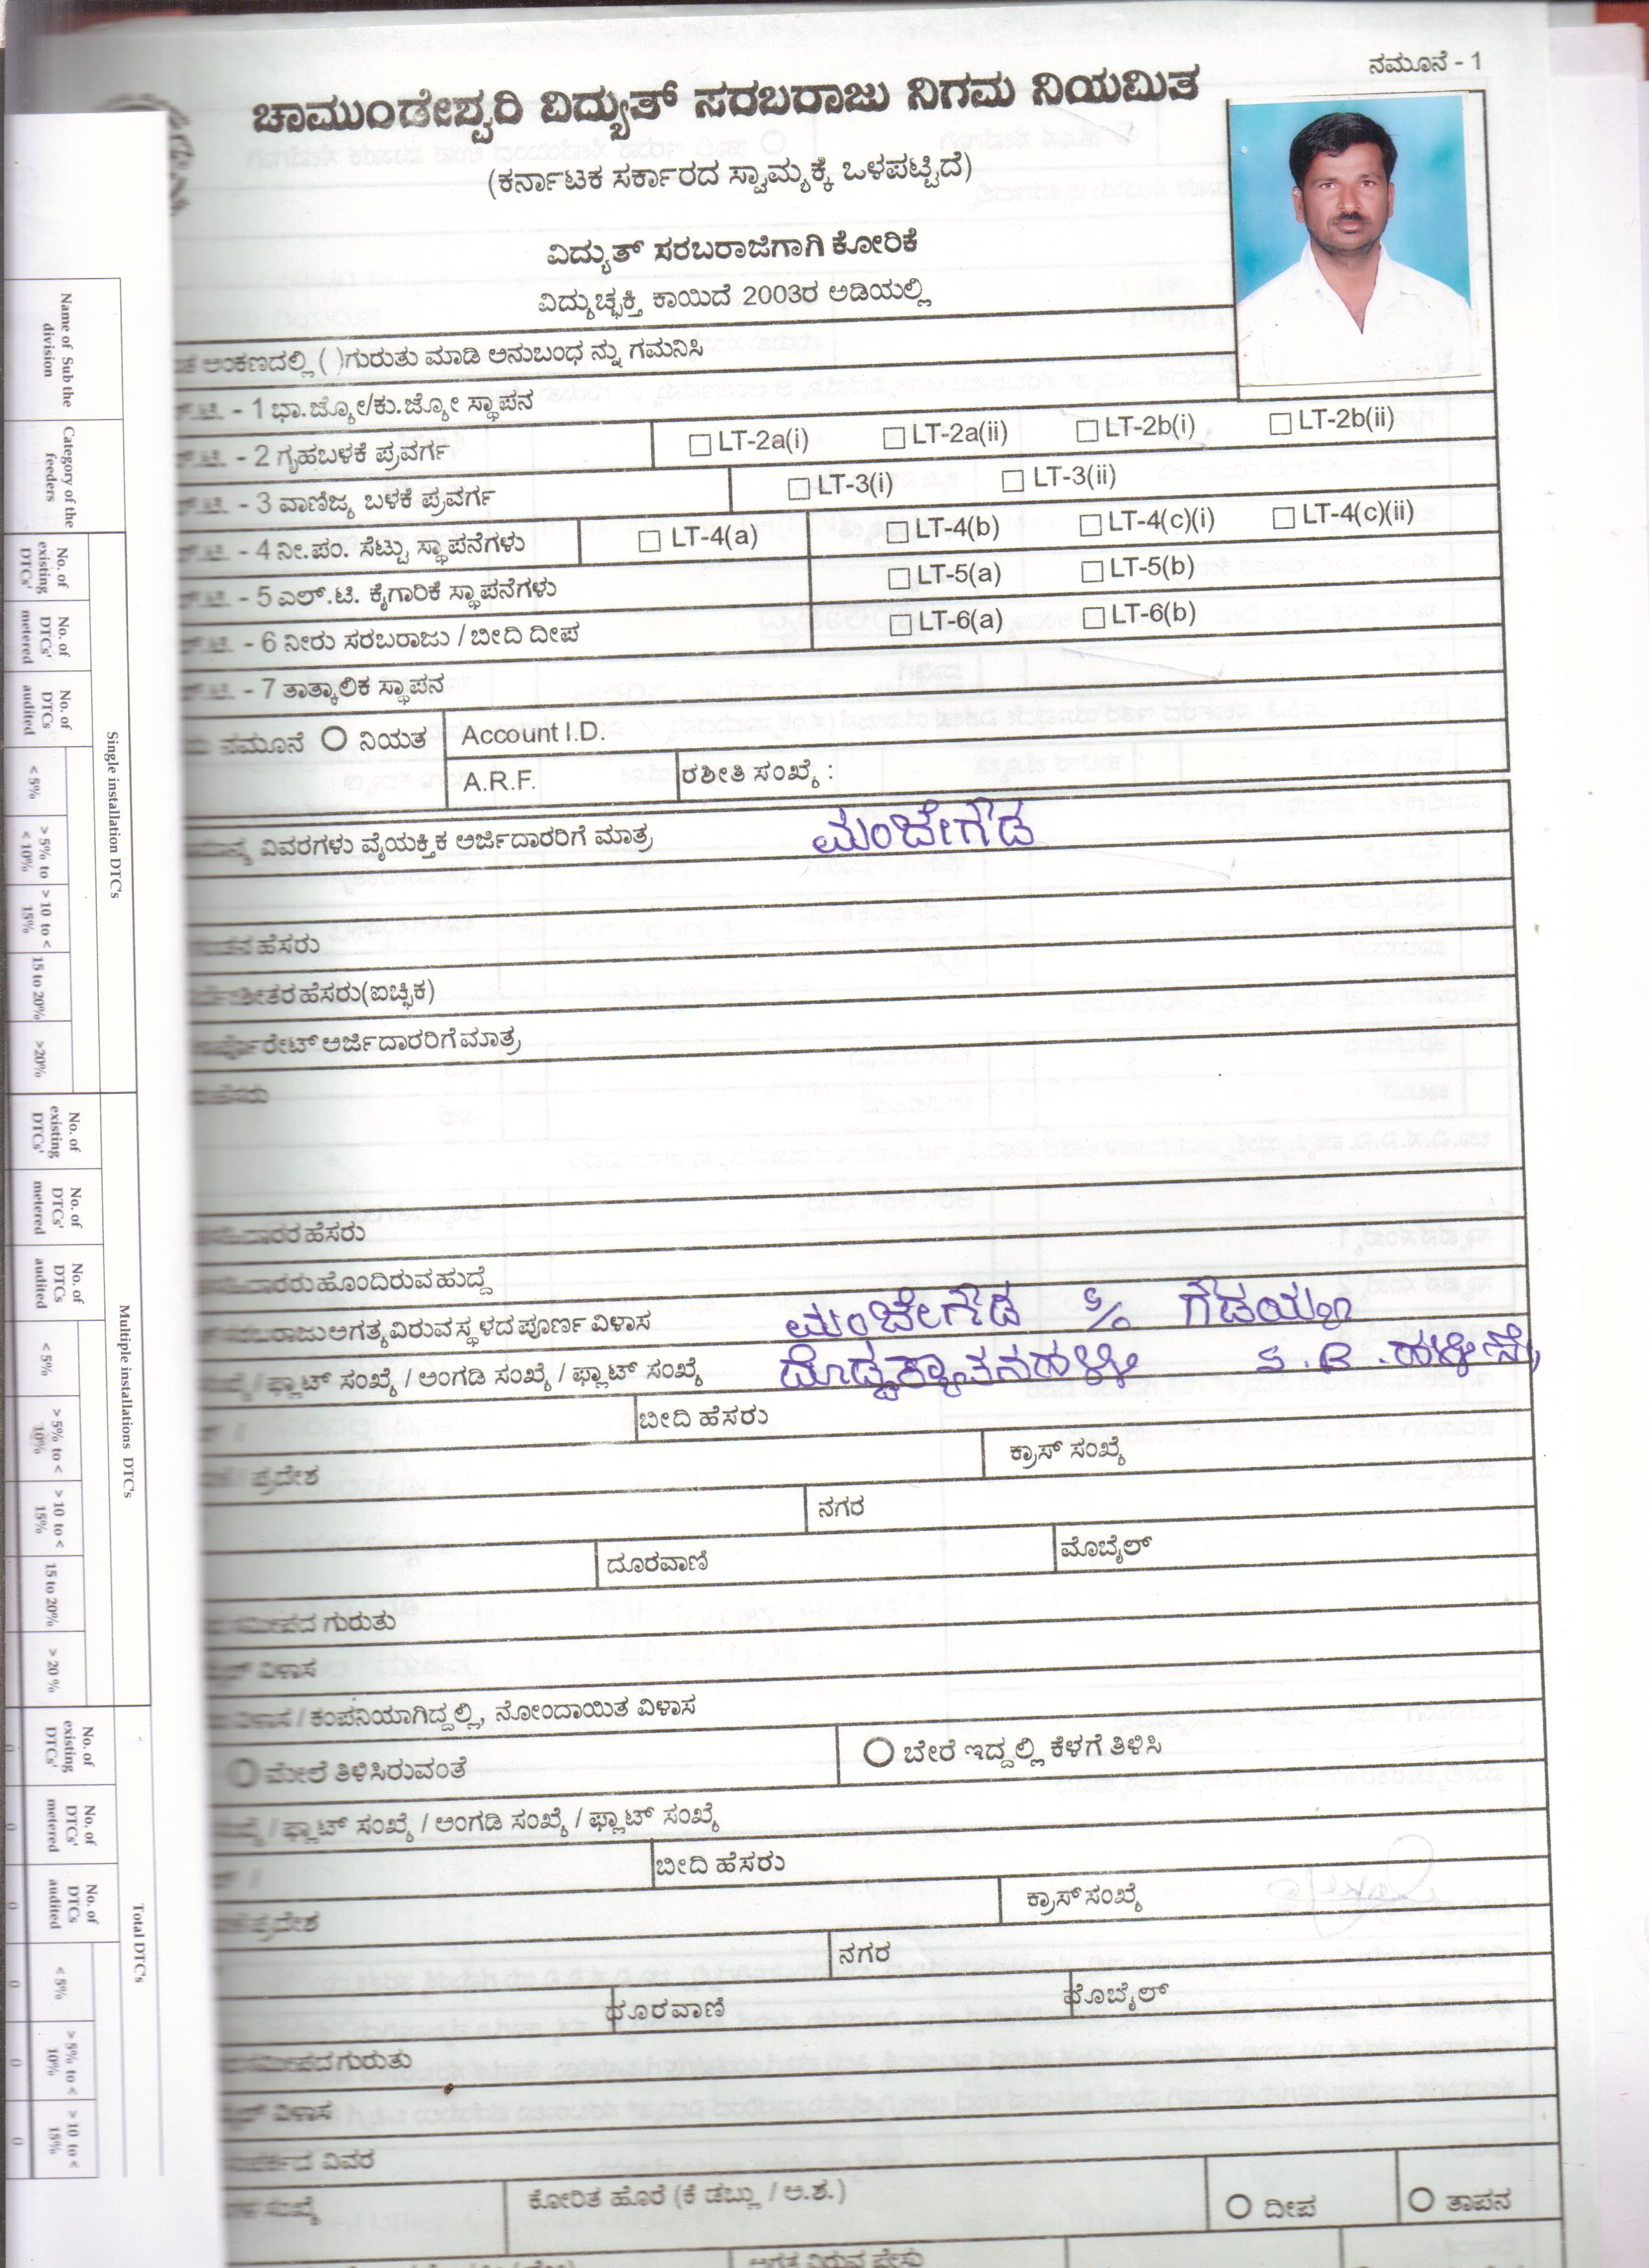 ನಮೂನೆ - 1
ಚಾಮುಂಡೇಶ್ವರಿ ವಿದ್ಯುತ್ ಸರಬರಾಜು ನಿಗಮ ನಿಯಮಿತ
(ಕರ್ನಾಟಕ ಸರ್ಕಾರದ ಸ್ವಾಮ್ಯಕ್ಕೆ ಒಳಪಟ್ಟಿದೆ)
ವಿದ್ಯುತ್ ಸರಬರಾಜಿಗಾಗಿ ಕೋರಿಕೆ
ವಿದ್ಯುಚ್ಛಕ್ತಿ ಕಾಯಿದೆ 2003ರ ಅಡಿಯಲ್ಲಿ
ಅಂಕಣದಲ್ಲಿ ( )ಗುರುತು ಮಾಡಿ ಅನುಬಂಧ ನ್ನು ಗಮನಿಸಿ
- 1 ಭಾ.ಜ್ಯೋ/ಕು.ಜ್ಯೋ ಸ್ಥಾಪನ
- 2 ಗೃಹಬಳಕೆ ಪ್ರವರ್ಗ LT-2a(i) LT-2a(ii) LT-2b(i) LT-2b(ii)
- 3 ವಾಣಿಜ್ಯ ಬಳಕೆ ಪ್ರವರ್ಗ LT-3(i) LT-3(ii)
- 4 ನೀ.ಪಂ. ಸೆಟ್ಟು ಸ್ಥಾಪನೆಗಳು LT-4(a) LT-4(b) LT-4(c)(i) LT-4(c)(ii)
- 5 ಎಲ್.ಟಿ. ಕೈಗಾರಿಕೆ ಸ್ಥಾಪನೆಗಳು LT-5(a) LT-5(b)
- 6 ನೀರು ಸರಬರಾಜು / ಬೀದಿ ದೀಪ LT-6(a) LT-6(b)
- 7 ತಾತ್ಕಾಲಿಕ ಸ್ಥಾಪನ
ನಮೂನೆ ನಿಯತ Account I.D.
A.R.F. ರಶೀತಿ ಸಂಖ್ಯೆ :
ವಿವರಗಳು ವೈಯಕ್ತಿಕ ಅರ್ಜಿದಾರರಿಗೆ ಮಾತ್ರ ಮಂಚೇಗೌಡ
ಹೆಸರು
ಹೆಸರು(ಐಚ್ಛಿಕ)
ಅರ್ಜಿದಾರರಿಗೆ ಮಾತ್ರ
ಹೆಸರು
ಹೆಸರು
ಹೊಂದಿರುವ ಹುದ್ದೆ
ಅಗತ್ಯವಿರುವ ಸ್ಥಳದ ಪೂರ್ಣ ವಿಳಾಸ ಮಂಚೇಗೌಡ S/o
/ ಫ್ಲಾಟ್ ಸಂಖ್ಯೆ / ಅಂಗಡಿ ಸಂಖ್ಯೆ / ಫ್ಲಾಟ್ ಸಂಖ್ಯೆ
ಬೀದಿ ಹೆಸರು
/ ಪ್ರದೇಶ ಕ್ರಾಸ್ ಸಂಖ್ಯೆ
ನಗರ
ದೂರವಾಣಿ ಮೊಬೈಲ್
ಸಮೀಪದ ಗುರುತು
ವಿಳಾಸ
ವಿಳಾಸ / ಕಂಪನಿಯಾಗಿದ್ದಲ್ಲಿ, ನೋಂದಾಯಿತ ವಿಳಾಸ
ಮೇಲೆ ತಿಳಿಸಿರುವಂತೆ ಬೇರೆ ಇದ್ದಲ್ಲಿ ಕೆಳಗೆ ತಿಳಿಸಿ
/ ಫ್ಲಾಟ್ ಸಂಖ್ಯೆ / ಅಂಗಡಿ ಸಂಖ್ಯೆ / ಫ್ಲಾಟ್ ಸಂಖ್ಯೆ
ಬೀದಿ ಹೆಸರು
ಪ್ರದೇಶ ಕ್ರಾಸ್ ಸಂಖ್ಯೆ
ನಗರ
ದೂರವಾಣಿ ಮೊಬೈಲ್
ಸಮೀಪದ ಗುರುತು
ವಿಳಾಸ
ವಿವರ
ಸಂಖ್ಯೆ ಕೋರಿತ ಹೊರೆ (ಕೆ ಡಬ್ಲು / ಅ.ಶ.) ದೀಪ ತಾಪನ
Name of Sub the division
Category of the feeders
Single installation DTC's
No. of existing DTCs'
No. of DTCs' metered
No. of DTCs audited
< 5%
> 5% to < 10%
> 10 to < 15%
15 to 20%
>20%
Multiple installations DTC's
No. of existing DTCs'
No. of DTCs' metered
No. of DTCs audited
< 5%
> 5% to < 10%
> 10 to < 15%
15 to 20%
> 20 %
Total DTC's
No. of existing DTCs'
No. of DTCs' metered
No. of DTCs audited
< 5%
> 5% to < 10%
> 10 to < 15%
0 0 0 0 0 0